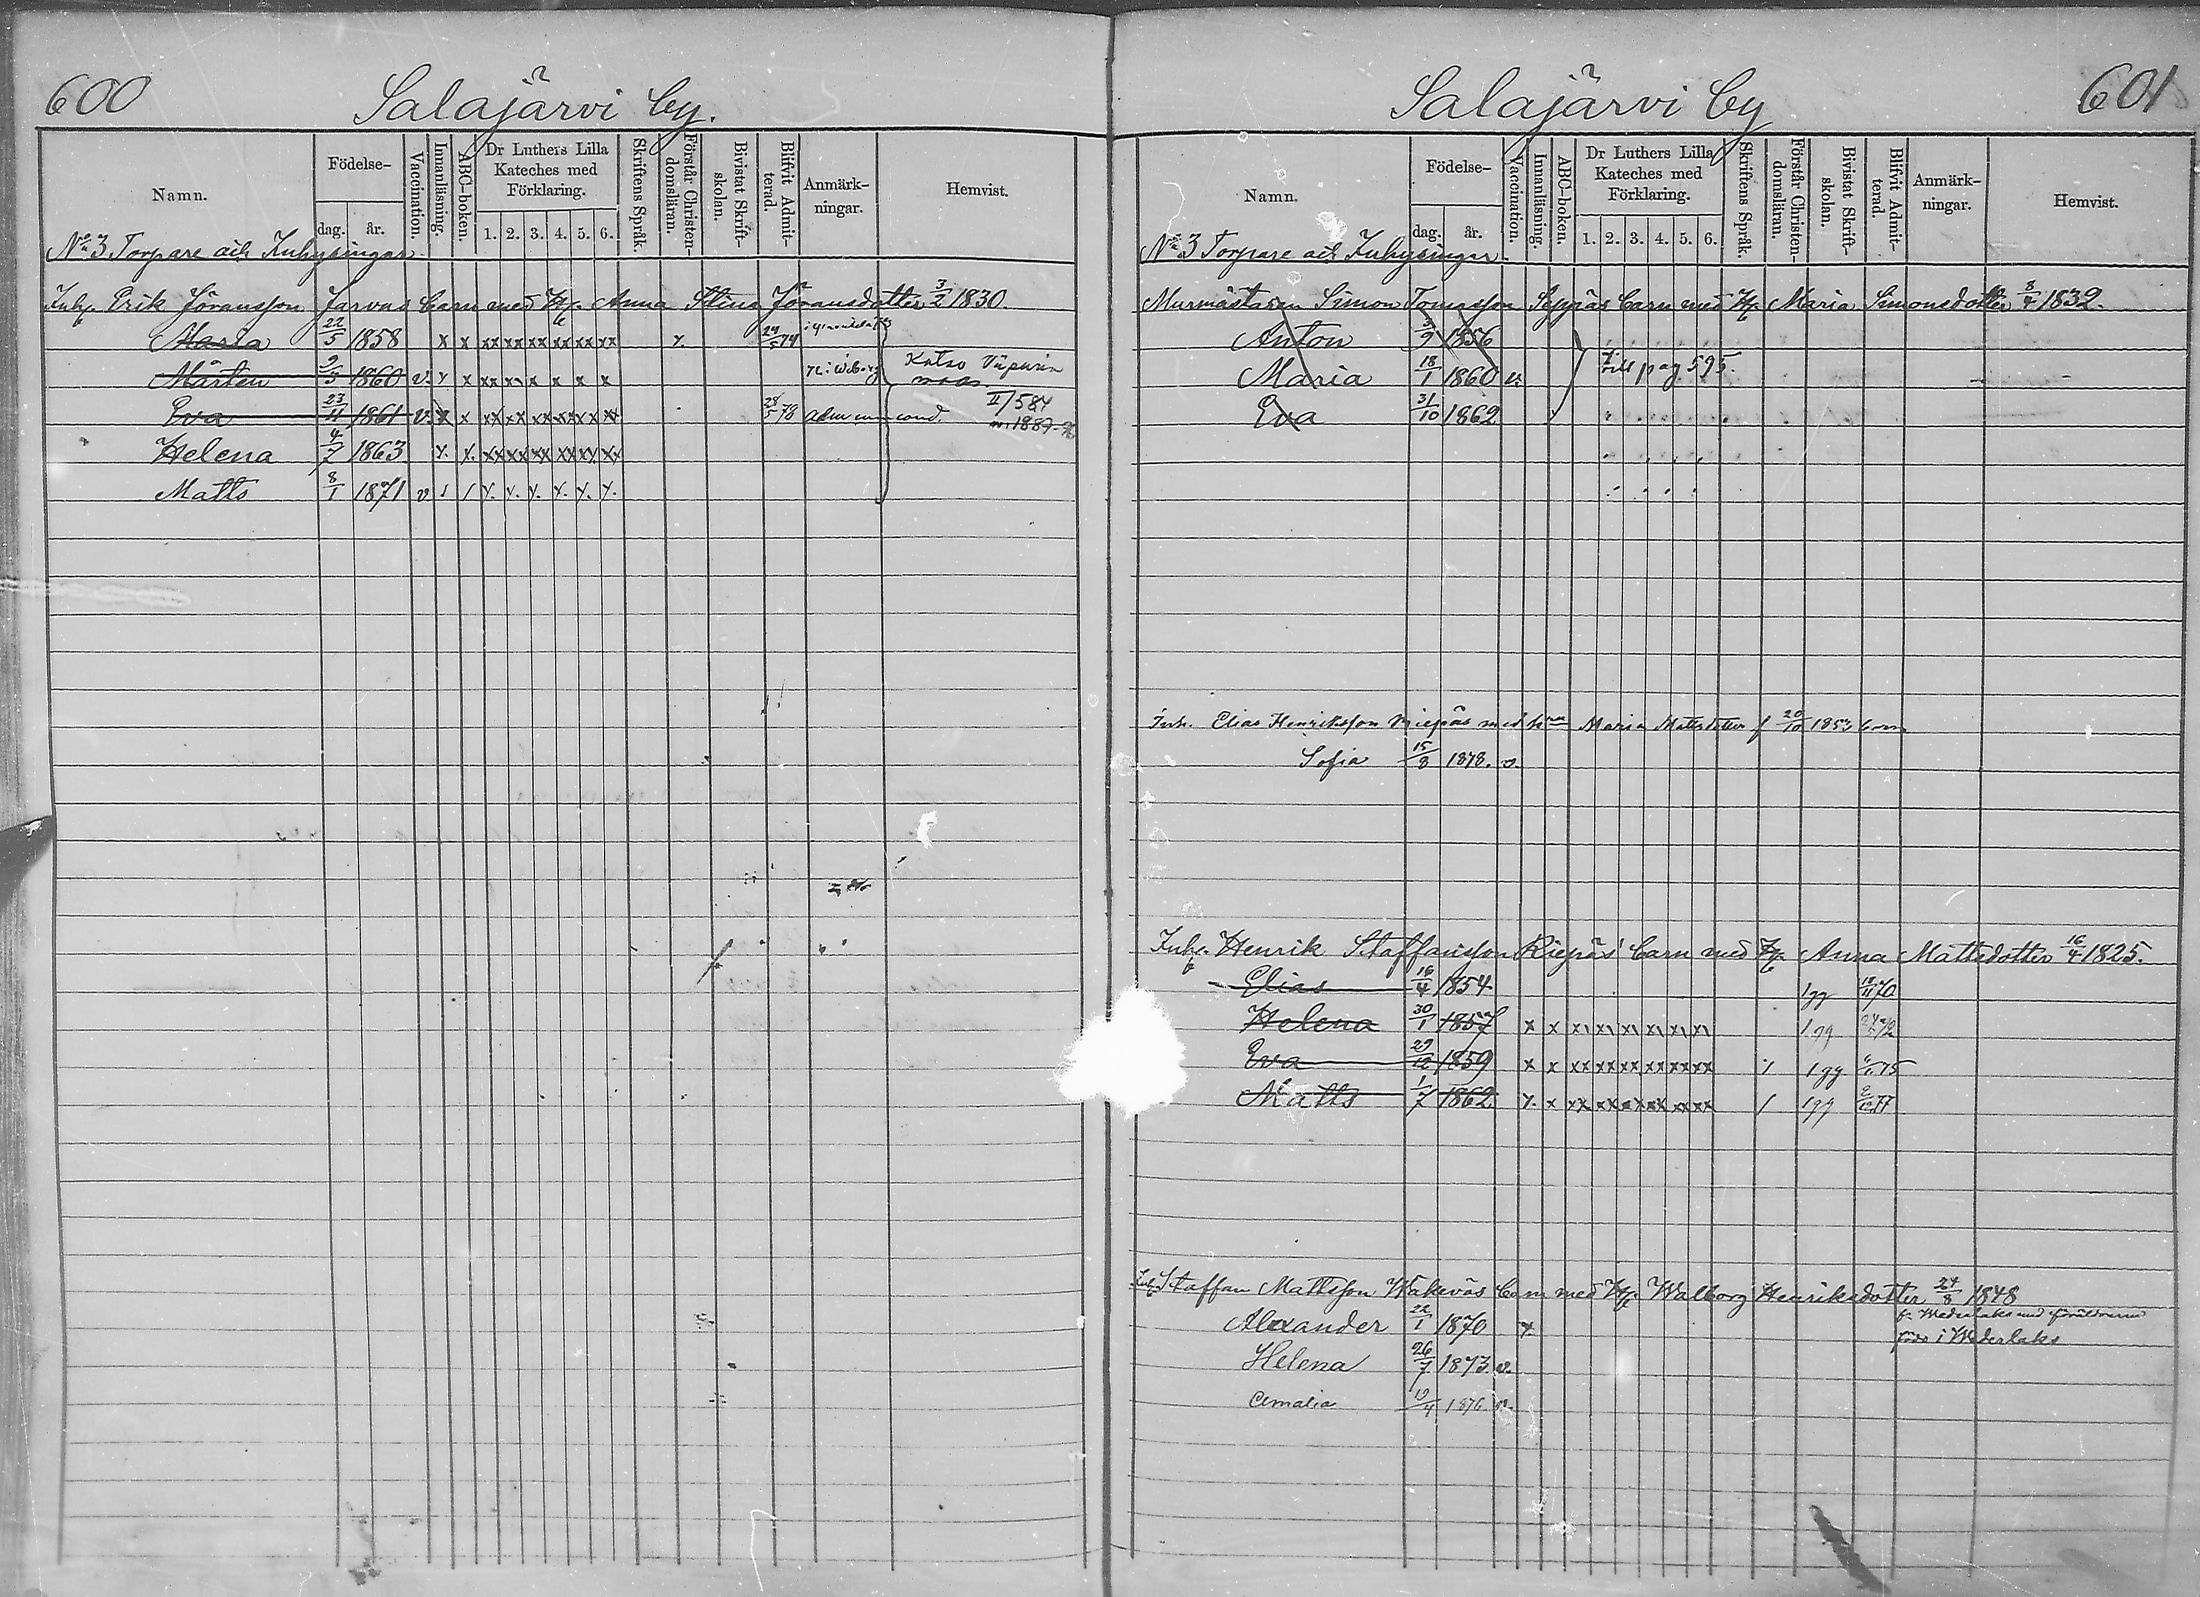 600 Salajärvi by.
Namn. Födelse- dag. år. Vaccination. Innanläsning. ABC-boken. Dr Luthers Lilla Kateches med Förklaring. 1. 2. 3. 4. 5. 6. Skriftens Språk. Förstår Christen-domsläran. Bivistat Skrift-skolan. Blifvit Admit-terad. Anmärk-ningar. Hemvist.
No 3 Torpare och Inhysingar
Inh. Erik Jöransson Jarvas barn med H. Anna Stina Jöransdotter 3/2 1830.
Maria 22/5 1858 x x xx xx xx xx xx xx x. 24/5 74
Mårten 9/3 1860 v. x x xx x x x x Katso Viipurin
Eva 23/11 1861 v. x x xx xx xx xx xx xx 28/5 78 adm II/584
Helena 4/7 1863 x. x. xx xx xx xx xx xx
Matts 8/1 1871 v. x. x. x. x. x. x.
Salajärvi by 601
Namn. Födelse- dag. år. Vaccination. Innanläsning. ABC-boken. Dr Luthers Lilla Kateches med Förklaring. 1. 2. 3. 4. 5. 6. Skriftens Språk. Förstår Christen-domsläran. Bivistat Skrift-skolan. Blifvit Admit-terad. Anmärk-ningar. Hemvist.
No 3 Torpare och Inhysingar
Murmästaren Simon Tomasson Seppäs barn med H. Maria Simonsdotter 8/4 1832.
Anton 3/9 1856
Maria 18/1 1860 v. till pag 595.
Eva 31/10 1862
Inh. Elias Henriksson Riepäs med Maria Mattsdotter f 20/10 1853 barn
Sofia 15/8 1878. v.
Inh. Henrik Staffansson Riepäs barn med H. Anna Mattsdotter 16/4 1825.
Elias 16/4 1854 1 gg 70
Helena 30/1 1857 x x 1 gg
Eva 29/12 1859 x x xx xx xx xx xx xx 1 gg 75
Matts 1/7 1862 x. x xx xx xx xx xx xx 1 gg 77
Inh. Staffan Mattsson Wakeväs barn med H. Walborg Henriksdotter 24/8 1848
Alexander 22/1 1870 fr. Wederlaks med föräldrarne
Helena 26/7 1873 v. född i Wederlaks
Amalia 19/4 1876 v.